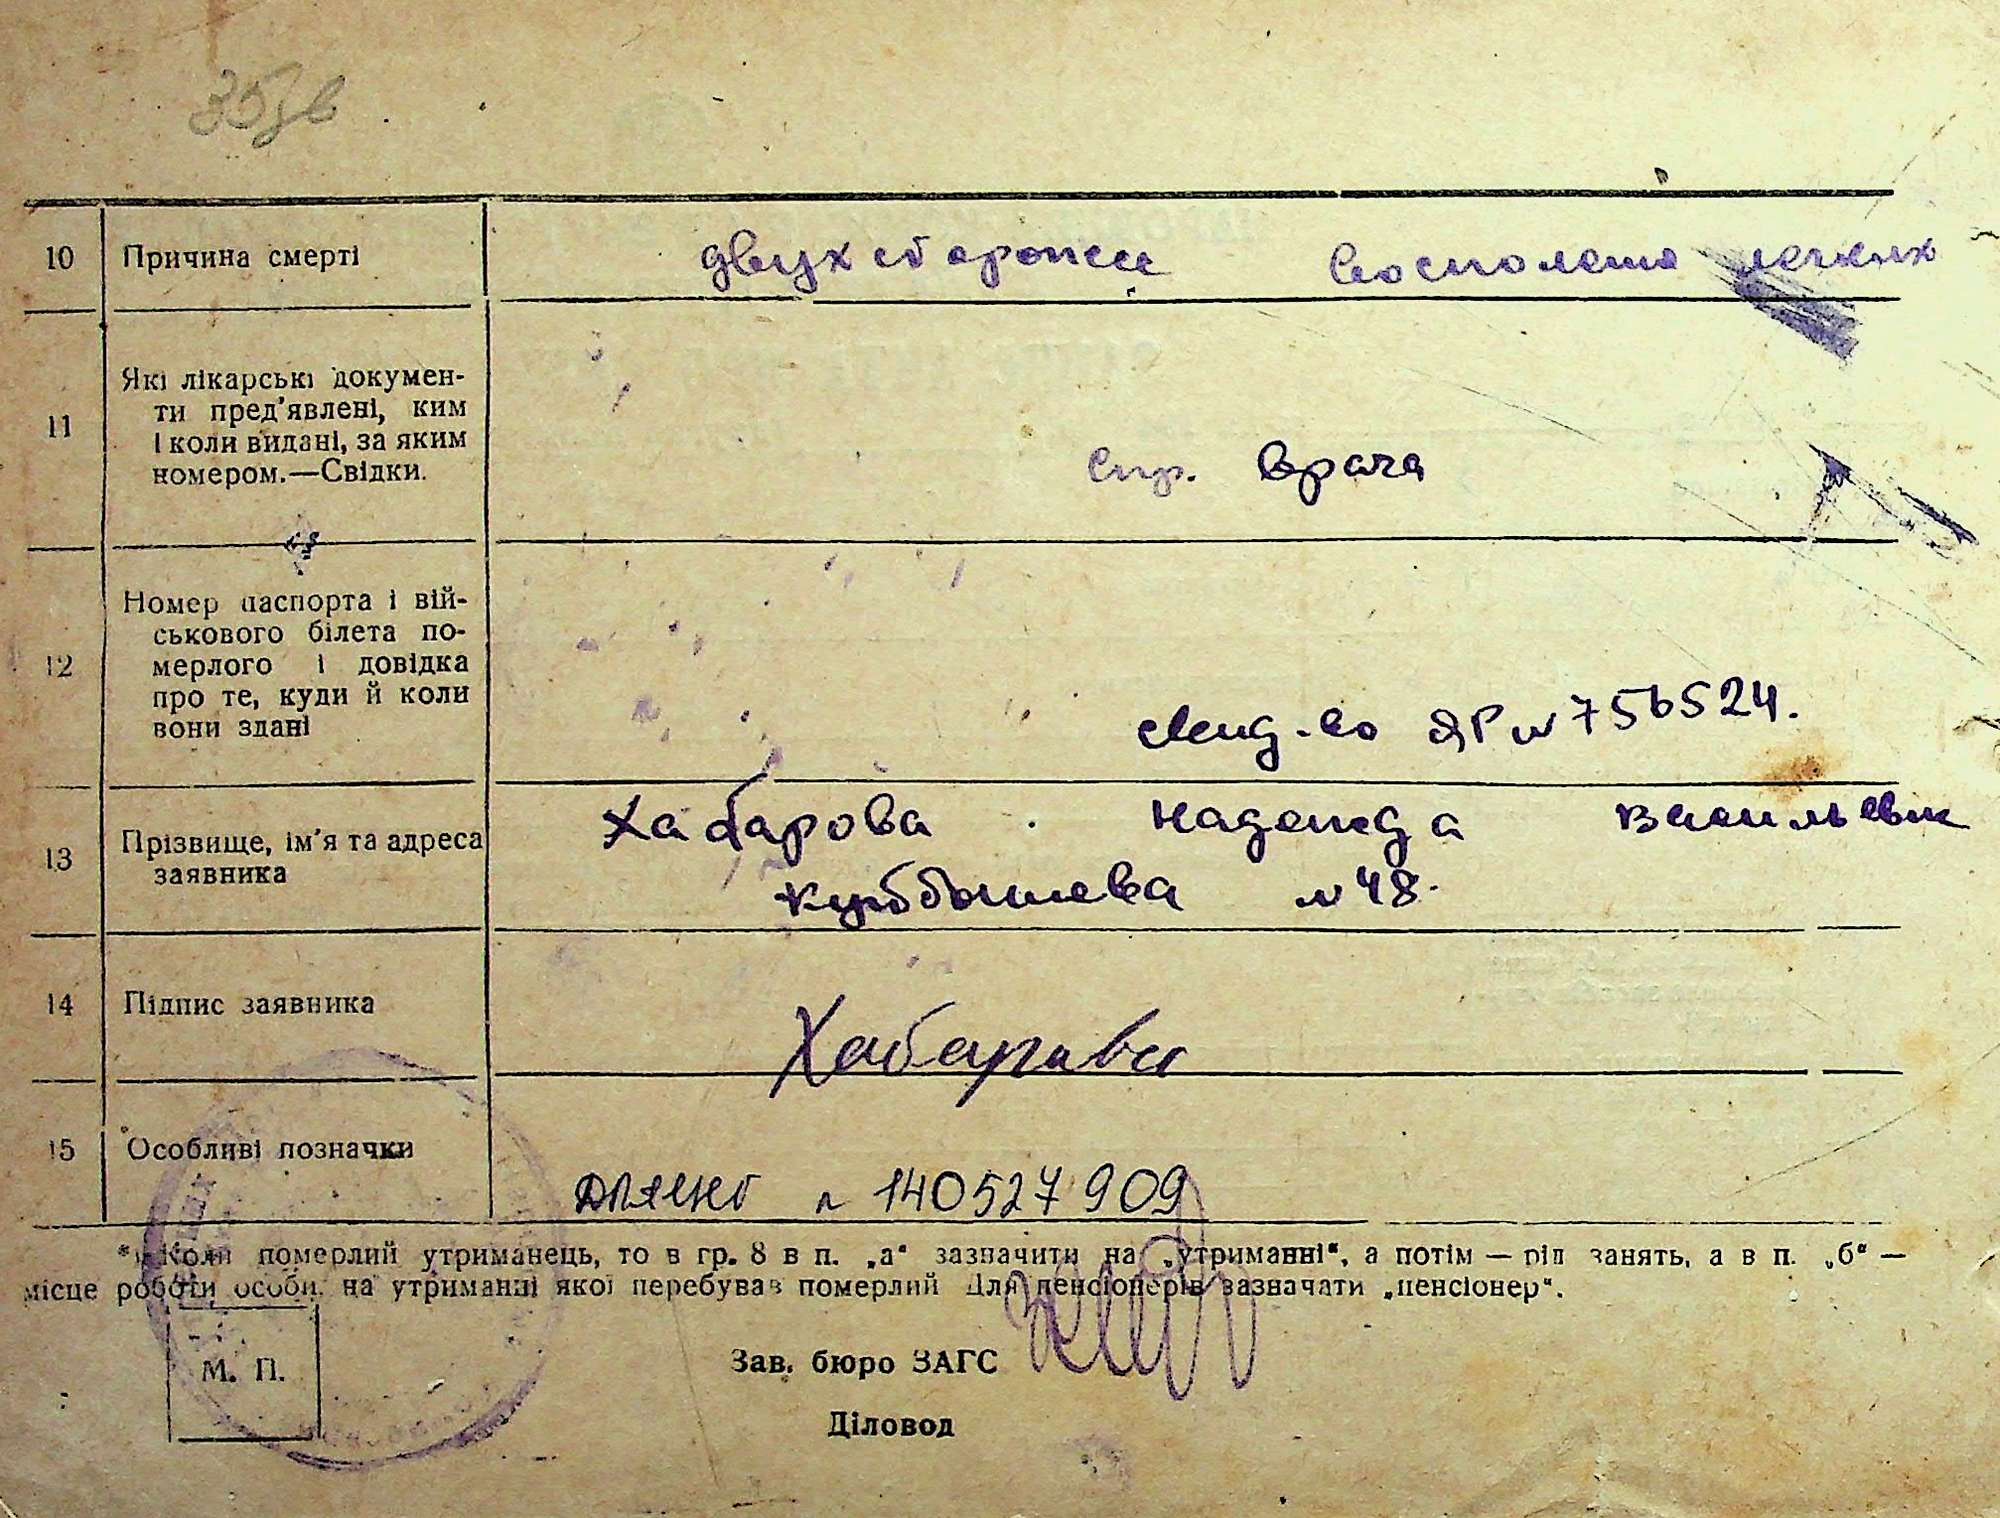 10 Причина смерті двухсторонее воспаление легких
11 Які лікарські докумен-
ти пред'явлені, ким
і коли видані, за яким
номером.—Свідки.
спр. врача
12 Номер паспорта і вій-
ськового білета по-
мерлого і довідка
про те, куди й коли
вони здані
ЯР № 756524.
13 Прізвище, ім'я та адреса
заявника
Хабарова Надежда Васильевн
Куйбышева № 48.
14 Підпис заявника Хабарова
15 Особливі позначки
№ 140527909
*) Коли померлий утриманець, то в гр. 8 в п. „а“ зазначити на „утриманні“, а потім — рід занять, а в п. „б“ —
місце роботи особи, на утриманні якої перебував померлий Для пенсіонерів зазначати „пенсіонер“.
М. П.
Зав. бюро ЗАГС
Діловод